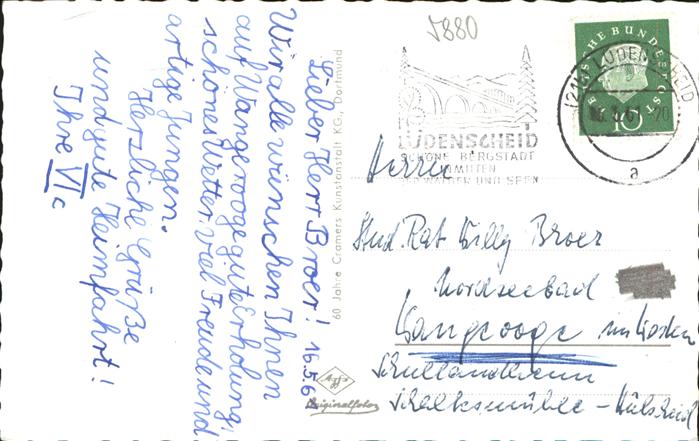 Lieber Herr Broer! 16.5.6
Wir alle wünschen Ihnen
auf Wangerooge gute Erholung,
schönes Wetter, viel Freude und
artige Jungen.
Herzliche Grüße
und gute Heimfahrt!
Ihre VIc
60 Jahre Cramers Kunstanstalt KG., Dortmund
Agfa
Originalfoto
5880
LÜDENSCHEID
SCHÖNE BERGSTADT
INMITTEN
WÄLDER UND SEEN
DEUTSCHE BUNDESPOST
10
LÜDENSCHEID
a
Herrn
Stud. Rat Willy Broer
Nordseebad
Wangerooge im Westen
Schullandheim
Schalksmühle-Hülscheid